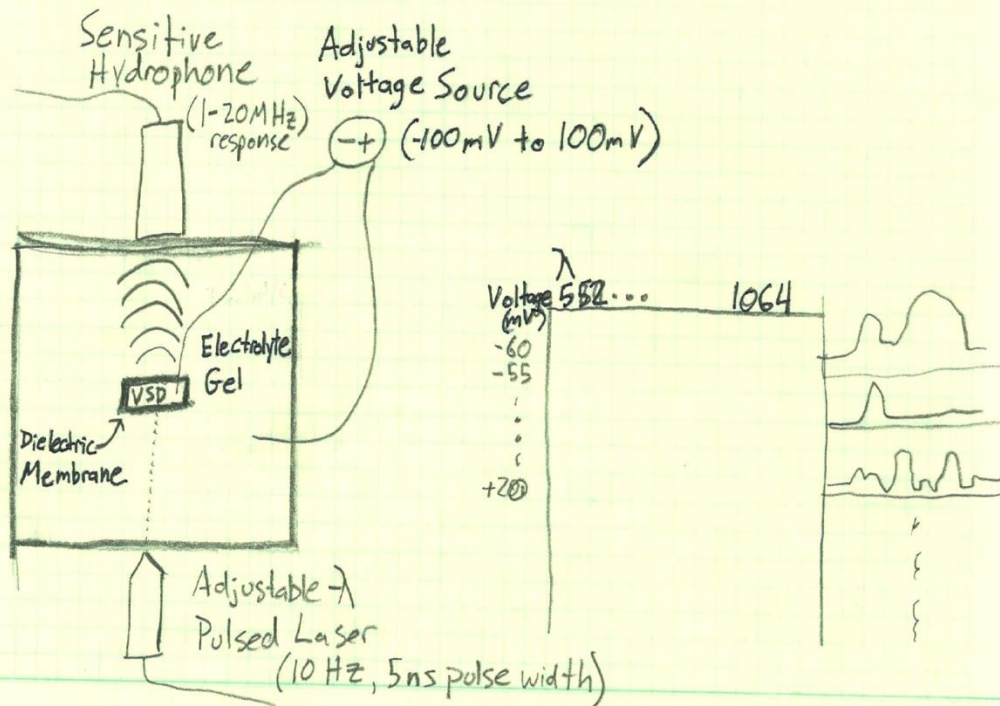 Sensitive
Hydrophone
(1-20MHz)
response
Adjustable
Voltage Source
- +
(-100mV to 100mV)
Electrolyte
Gel
VSD
Dielectric
Membrane
Adjustable-λ
Pulsed Laser
(10 Hz, 5ns pulse width)
λ
Voltage 532... 1064
(mV)
-60
-55
+20